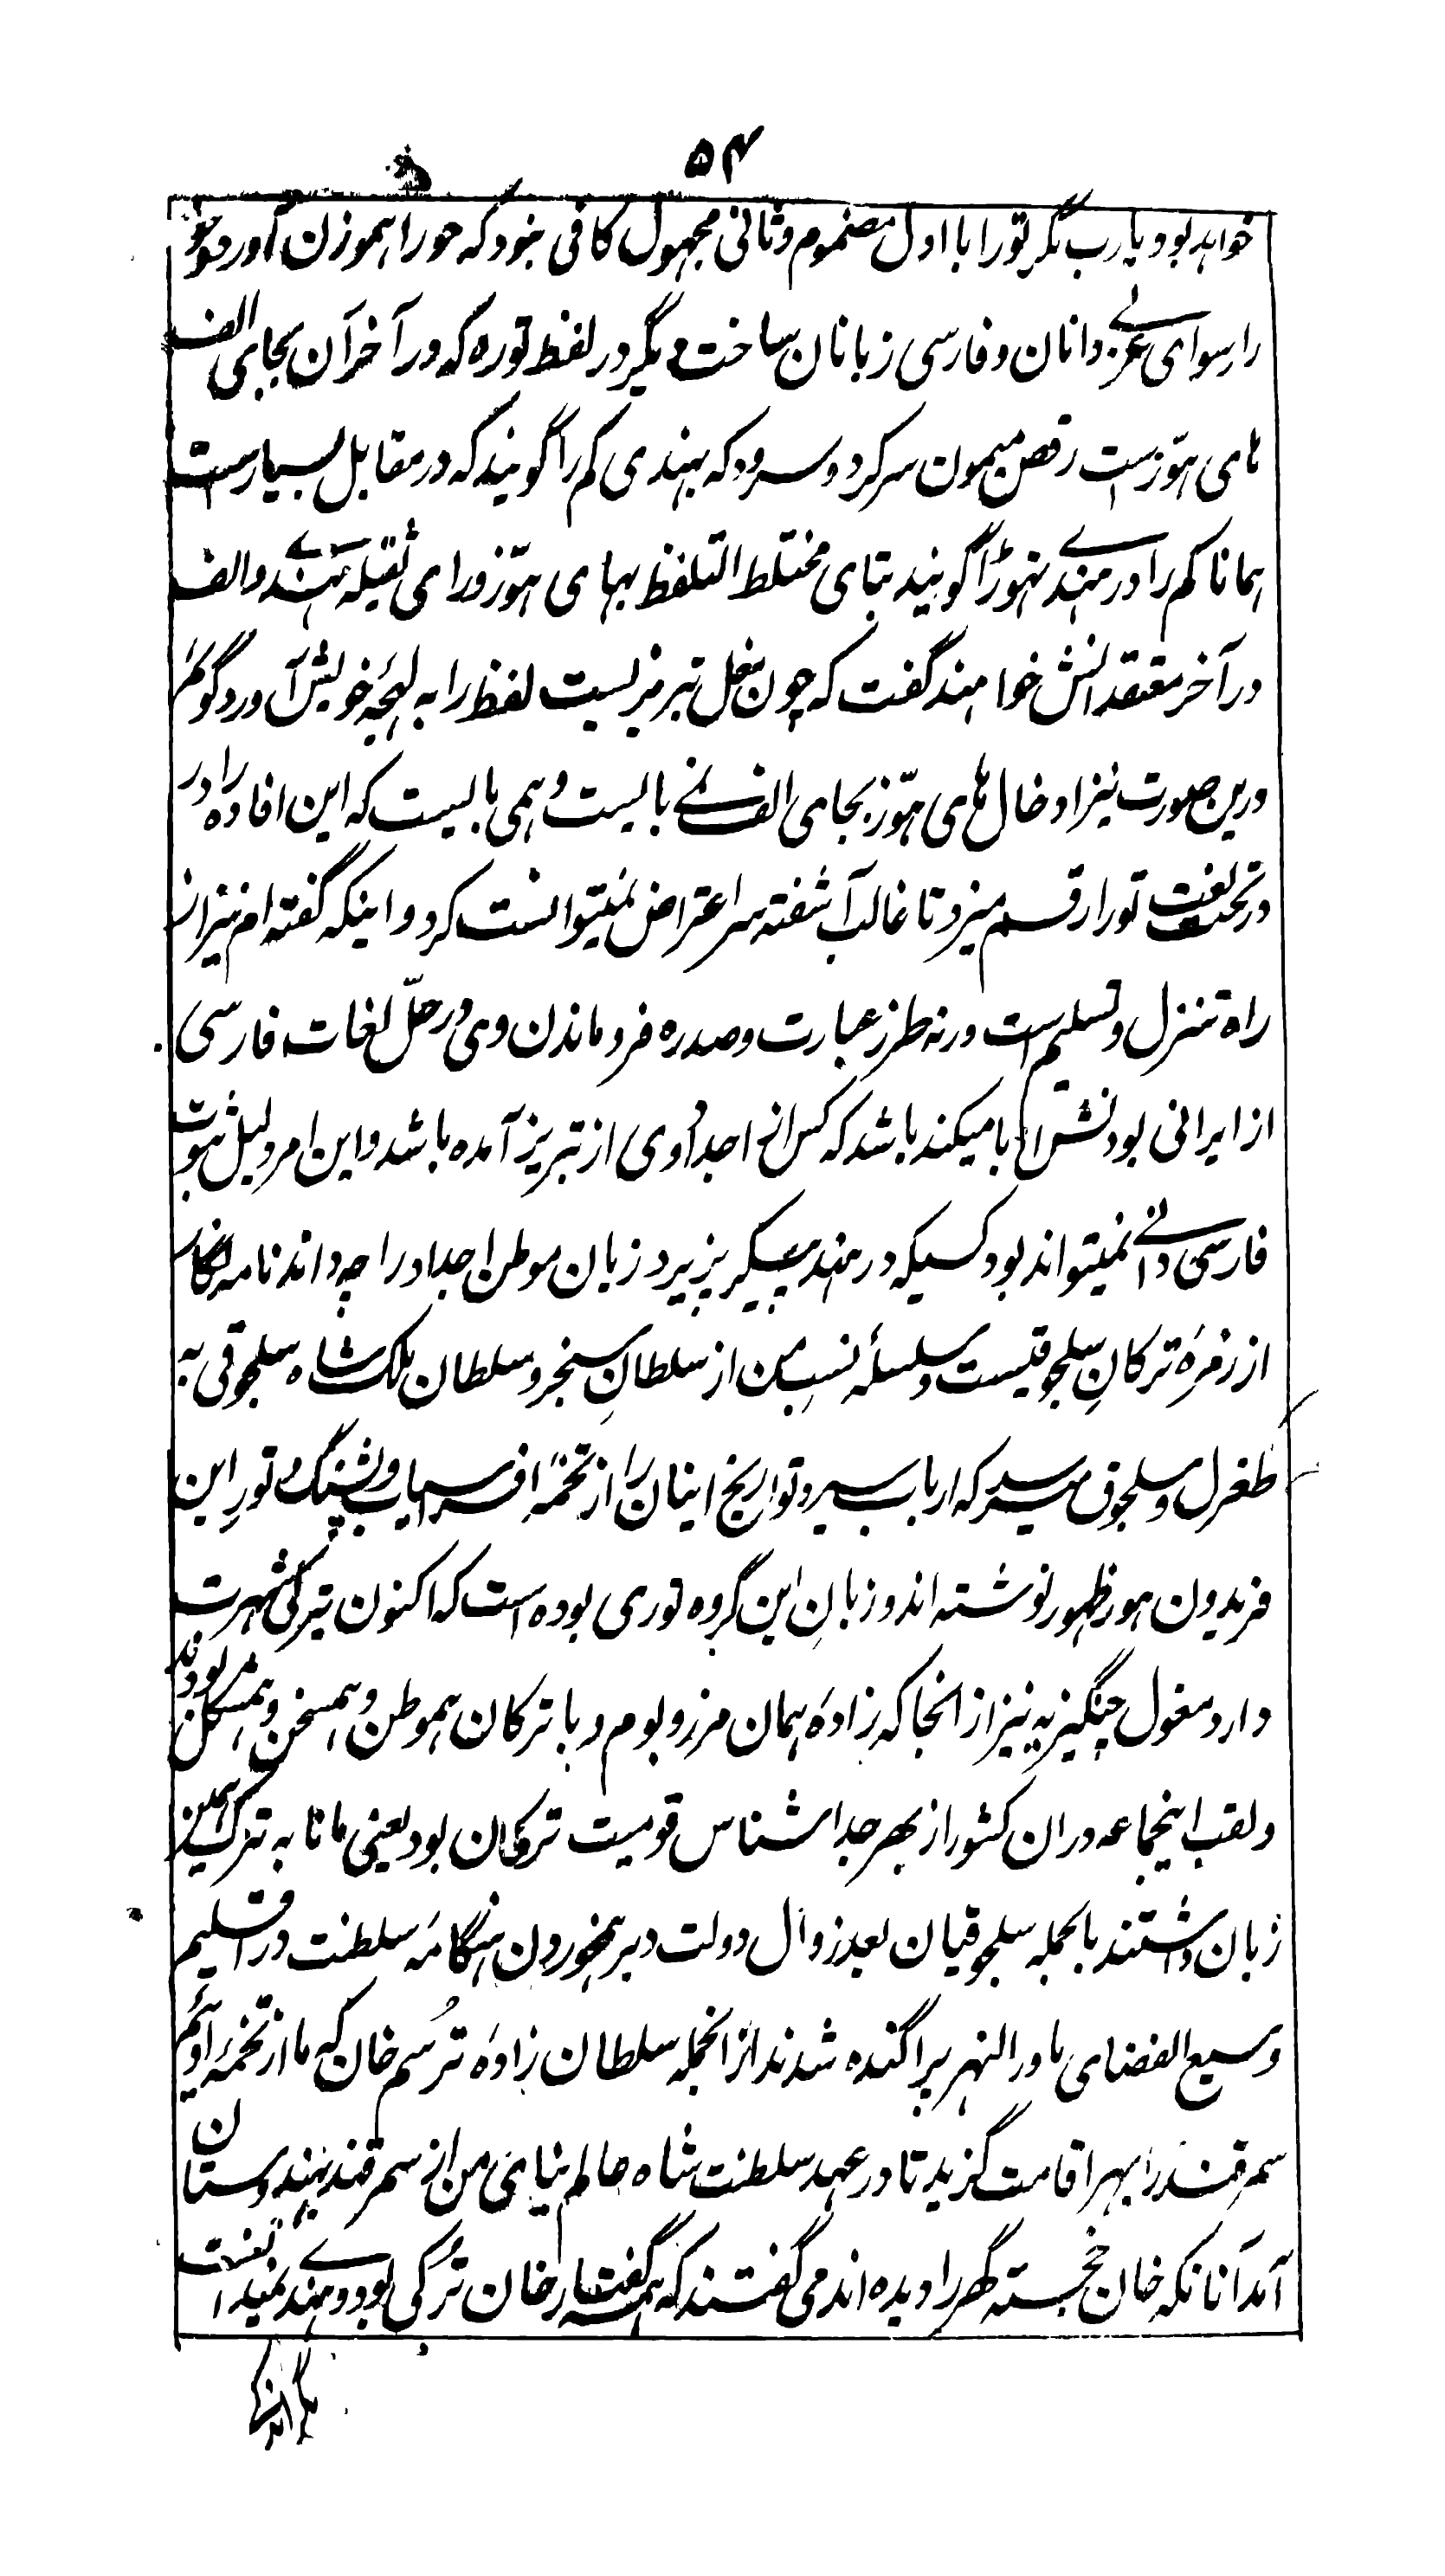 ۵۴
خواهد بود یارب مگر تورا با اول مضموم و ثانی مجهول کافی نبود که حورا هموزن آورد و خود
را رسوای عربی دانان و فارسی زبانان ساخت دیگر در لفظ توره که در آخر آن بجای الف
های هوّز است رقص میمون سر کرد و سرود که بهندی کم را گویند که در مقابل بسیار است
همانا کم را در هندی تهوڑا گویند بتای مختلط التلفظ بهای هوّز و رای ثقیله هندی و الف
در آخر معتقدانش خواهند گفت که چون مغل تبریزیست لفظ را به لهجهٔ خویش آورد گوئم
درین صورت نیز ادخال های هوّز بجای الف نمی بایست و همی بایست که این افاده را در
در تحت لغت تورا رقم میزد تا غالب آشفته سر اعتراض نمیتوانست کرد و اینکه گفته ام نیز از
راه تنزل و تسلیم است ورنه طرز عبارت و صدره فروماندن وی در حلّ لغات فارسی
از ایرانی بودنش ابا میکند باشد که کس از اجداد وی از تبریز آمده باشد و این امر دلیل ثبوت
فارسی دانی نمیتواند بود کسیکه در هند پیکر پزیرد زبان موطن اجداد را چه داند نامه نگار
از زمرهٔ ترکانِ سلجوقیست و سلسلهٔ نسب من از سلطانِ سنجر و سلطان ملک شاه سلجوقی به
طغرل و سلجوق میرسد که ارباب سیر و تواریخ اینان را از تخمهٔ افراسیاب و پشنگ و تورِ ابن
فریدون هور ظهور نوشته اند و زبانِ این گروه توری بوده است که اکنون بترکی شهرت
دارد مغول چنگیزیه نیز از انجا که زادهٔ همان مرز و بوم و با ترکان هموطن و همسخن و همشکل بودند
و لقب اینجماعه دران کشور از بهر جدا شناس قومیت ترکمان بود یعنی مانا به ترک همین
زبان داشتند بالجمله سلجوقیان بعد زوال دولت و برهمخوردن هنگامهٔ سلطنت در اقلیم
وسیع الفضای ماورالنهر پراگنده شدند ازانجمله سلطان زادهٔ تُرسم خان که ما از تخمهٔ اوئیم
سمرقند را بهر اقامت گزید تا در عهد سلطنت شاه عالم نیای من از سمرقند بهندوستان
آمد آنانکه خان خجسته گهر را دیده اند می گفتند که همه گفتار خان تُرکی بود و هندی نمیدانست
مگر اندکی